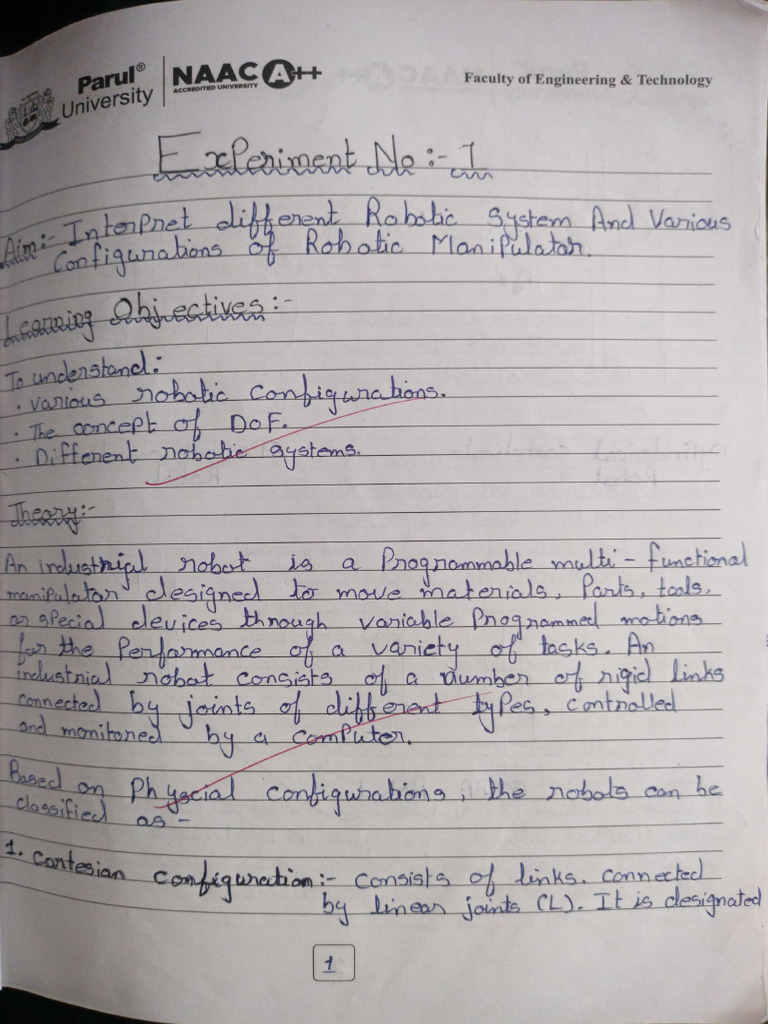 Parul® University
NAAC A++
ACCREDITED UNIVERSITY
Faculty of Engineering & Technology
Experiment No :- 1
Aim:- Interpret different Robotic System And Various
Configurations of Robotic Manipulator.
Learning Objectives:-
To understand:
· various robotic configurations.
· The concept of DoF.
· Different robotic systems.
Theory:-
An industrial robot is a Programmable multi-functional
manipulator designed to move materials, Parts, tools,
or special devices through variable Programmed motions
for the Performance of a variety of tasks. An
industrial robot consists of a number of rigid links
connected by joints of different types, controlled
and monitored by a computer.
Based on Physcial configurations, the robots can be
classified as -
1. Cartesian configuration:- consists of links. connected
by linear joints (L). It is designated
1